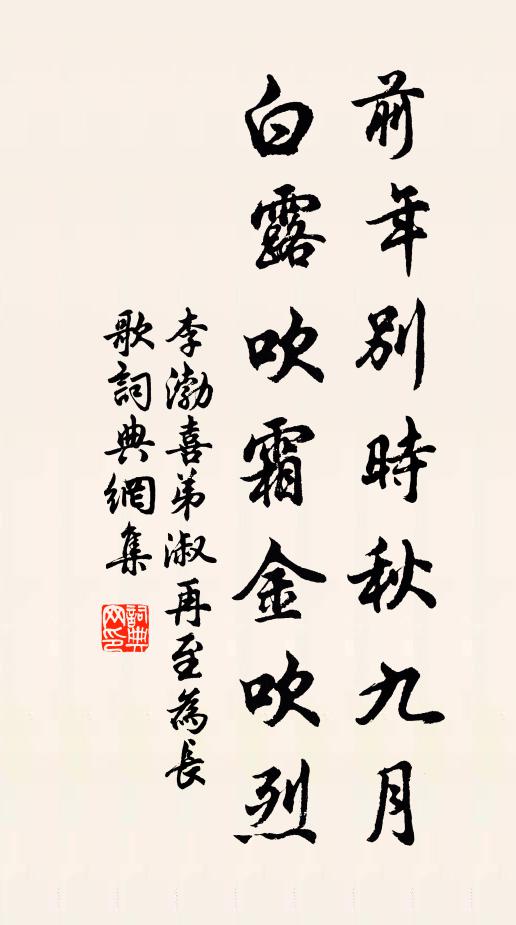 前年別時秋九月
白露吹霜金吹烈
李渤喜弟淑再至為長
歌詞典網集
詞典網印